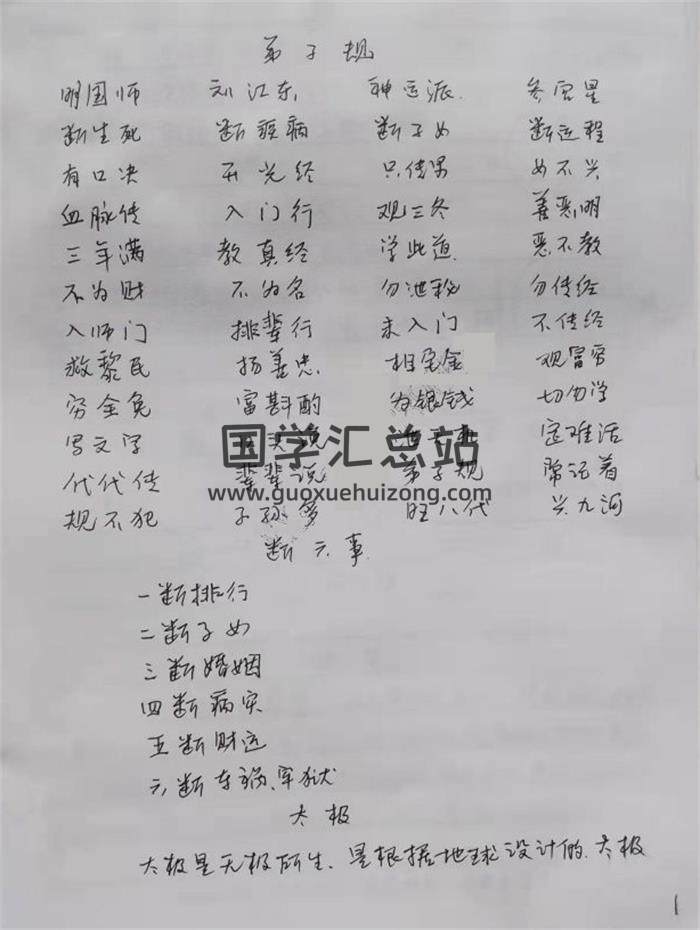 弟子规
明国师 刘江东 神运派 冬宫星
断生死 断疾病 断子女 断运程
有口决 开光经 只传男 女不兴
血脉传 入门行 观三冬 善恶明
三年满 教真经 学此道 恶不教
不为财 不为名 勿泄秘 勿传经
入师门 排辈行 未入门 不传经
救黎民 扬善忠 相金 观富穷
穷全免 富斟酌 为银钱 切勿学
写文字 定难活
国学汇总站
代代传 辈辈说 弟子规 常记着
www.guoxuehuizong.com
规不犯 子孙多 旺八代 兴九河
断六事
一断排行
二断子女
三断婚姻
四断病灾
五断财运
六断车祸、牢狱
太极
太极是无极所生、是根据地球设计的、太极
1